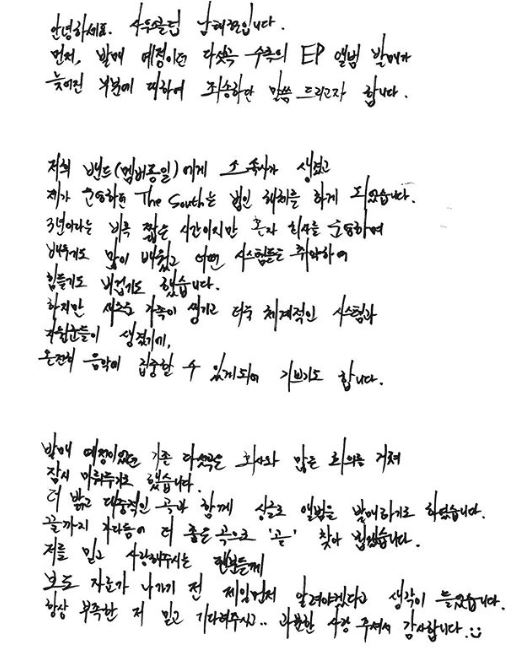 안녕하세요. 사우스클럽 남태현입니다.
먼저, 발매 예정이던 다섯곡 수록의 EP 앨범 발매가
늦어진 부분에 대하여 죄송하단 말씀 드리고자 합니다.
저희 밴드(멤버동일)에게 소속사가 생겼고
제가 운영하던 The South는 법인 해체를 하게 되었습니다.
3년이라는 비록 짧은 시간이지만 혼자 회사를 운영하며
배우기도 많이 배웠고 어떤 시스템들은 취약하여
힘들기도 버겁기도 했습니다.
하지만 새로운 가족이 생기고 더욱 체계적인 시스템과
지원군들이 생겼기에,
온전히 음악에 집중할 수 있게되어 기쁘기도 합니다.
발매 예정이었던 기존 다섯곡은 회사와 많은 회의를 거쳐
잠시 미뤄두기로 했습니다.
더 밝고 대중적인 곡과 함께 싱글로 앨범을 발매하기로 하였습니다.
끝까지 가다듬어 더 좋은 곡으로 '곧' 찾아 뵙겠습니다.
저를 믿고 사랑해주시는 팬분들께
보도 자료가 나가기 전 제일먼저 알려야겠다고 생각이 들었습니다.
항상 부족한 저 믿고 기다려주시고.. 과분한 사랑 주셔서 감사합니다.:)